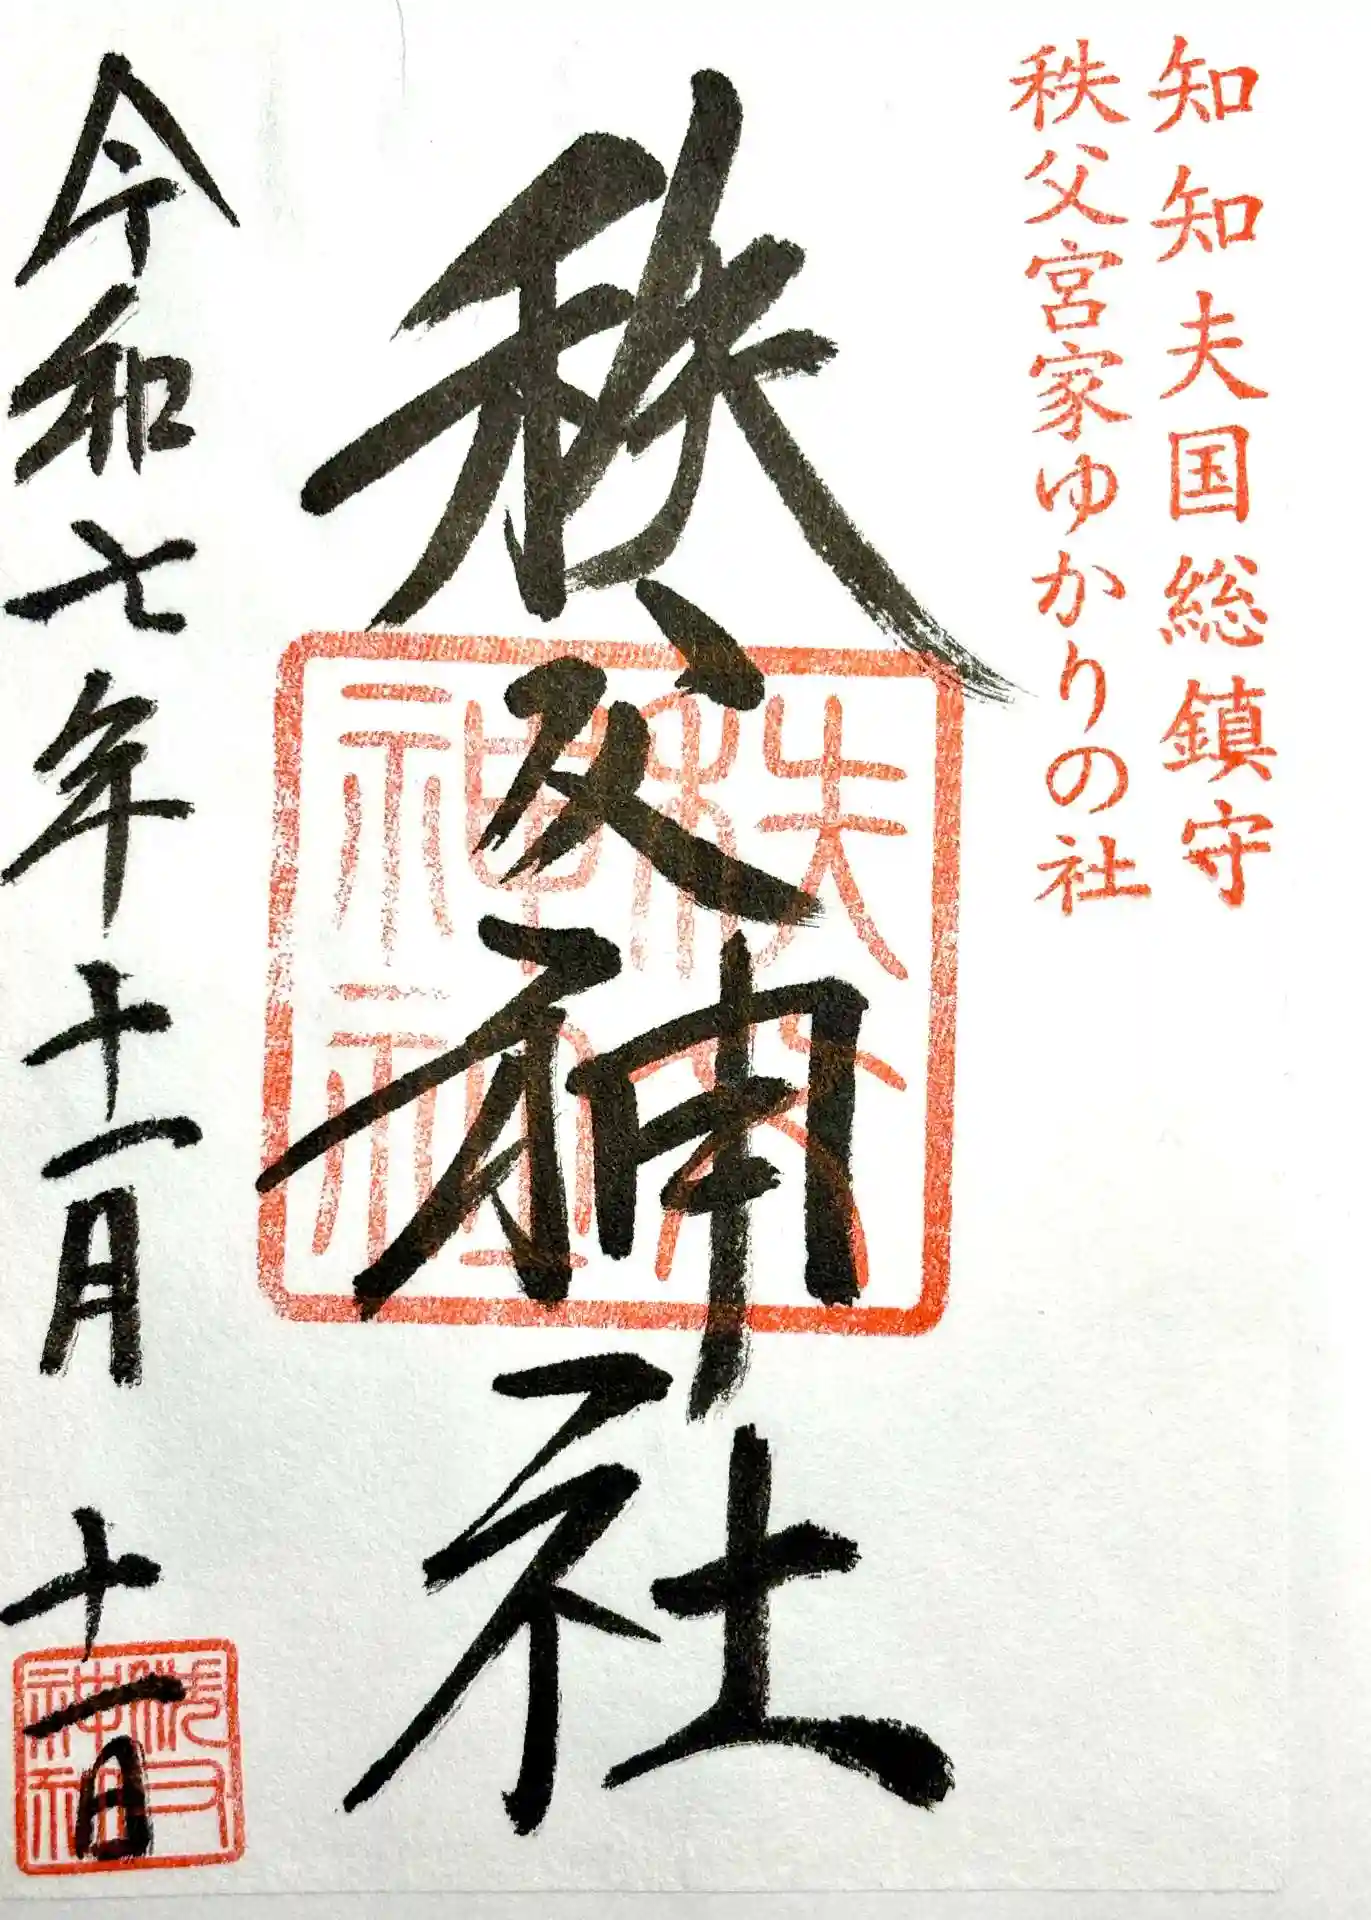 知知夫国総鎮守
秩父宮家ゆかりの社
秩父神社
秩父神社
令和七年十一月十一日